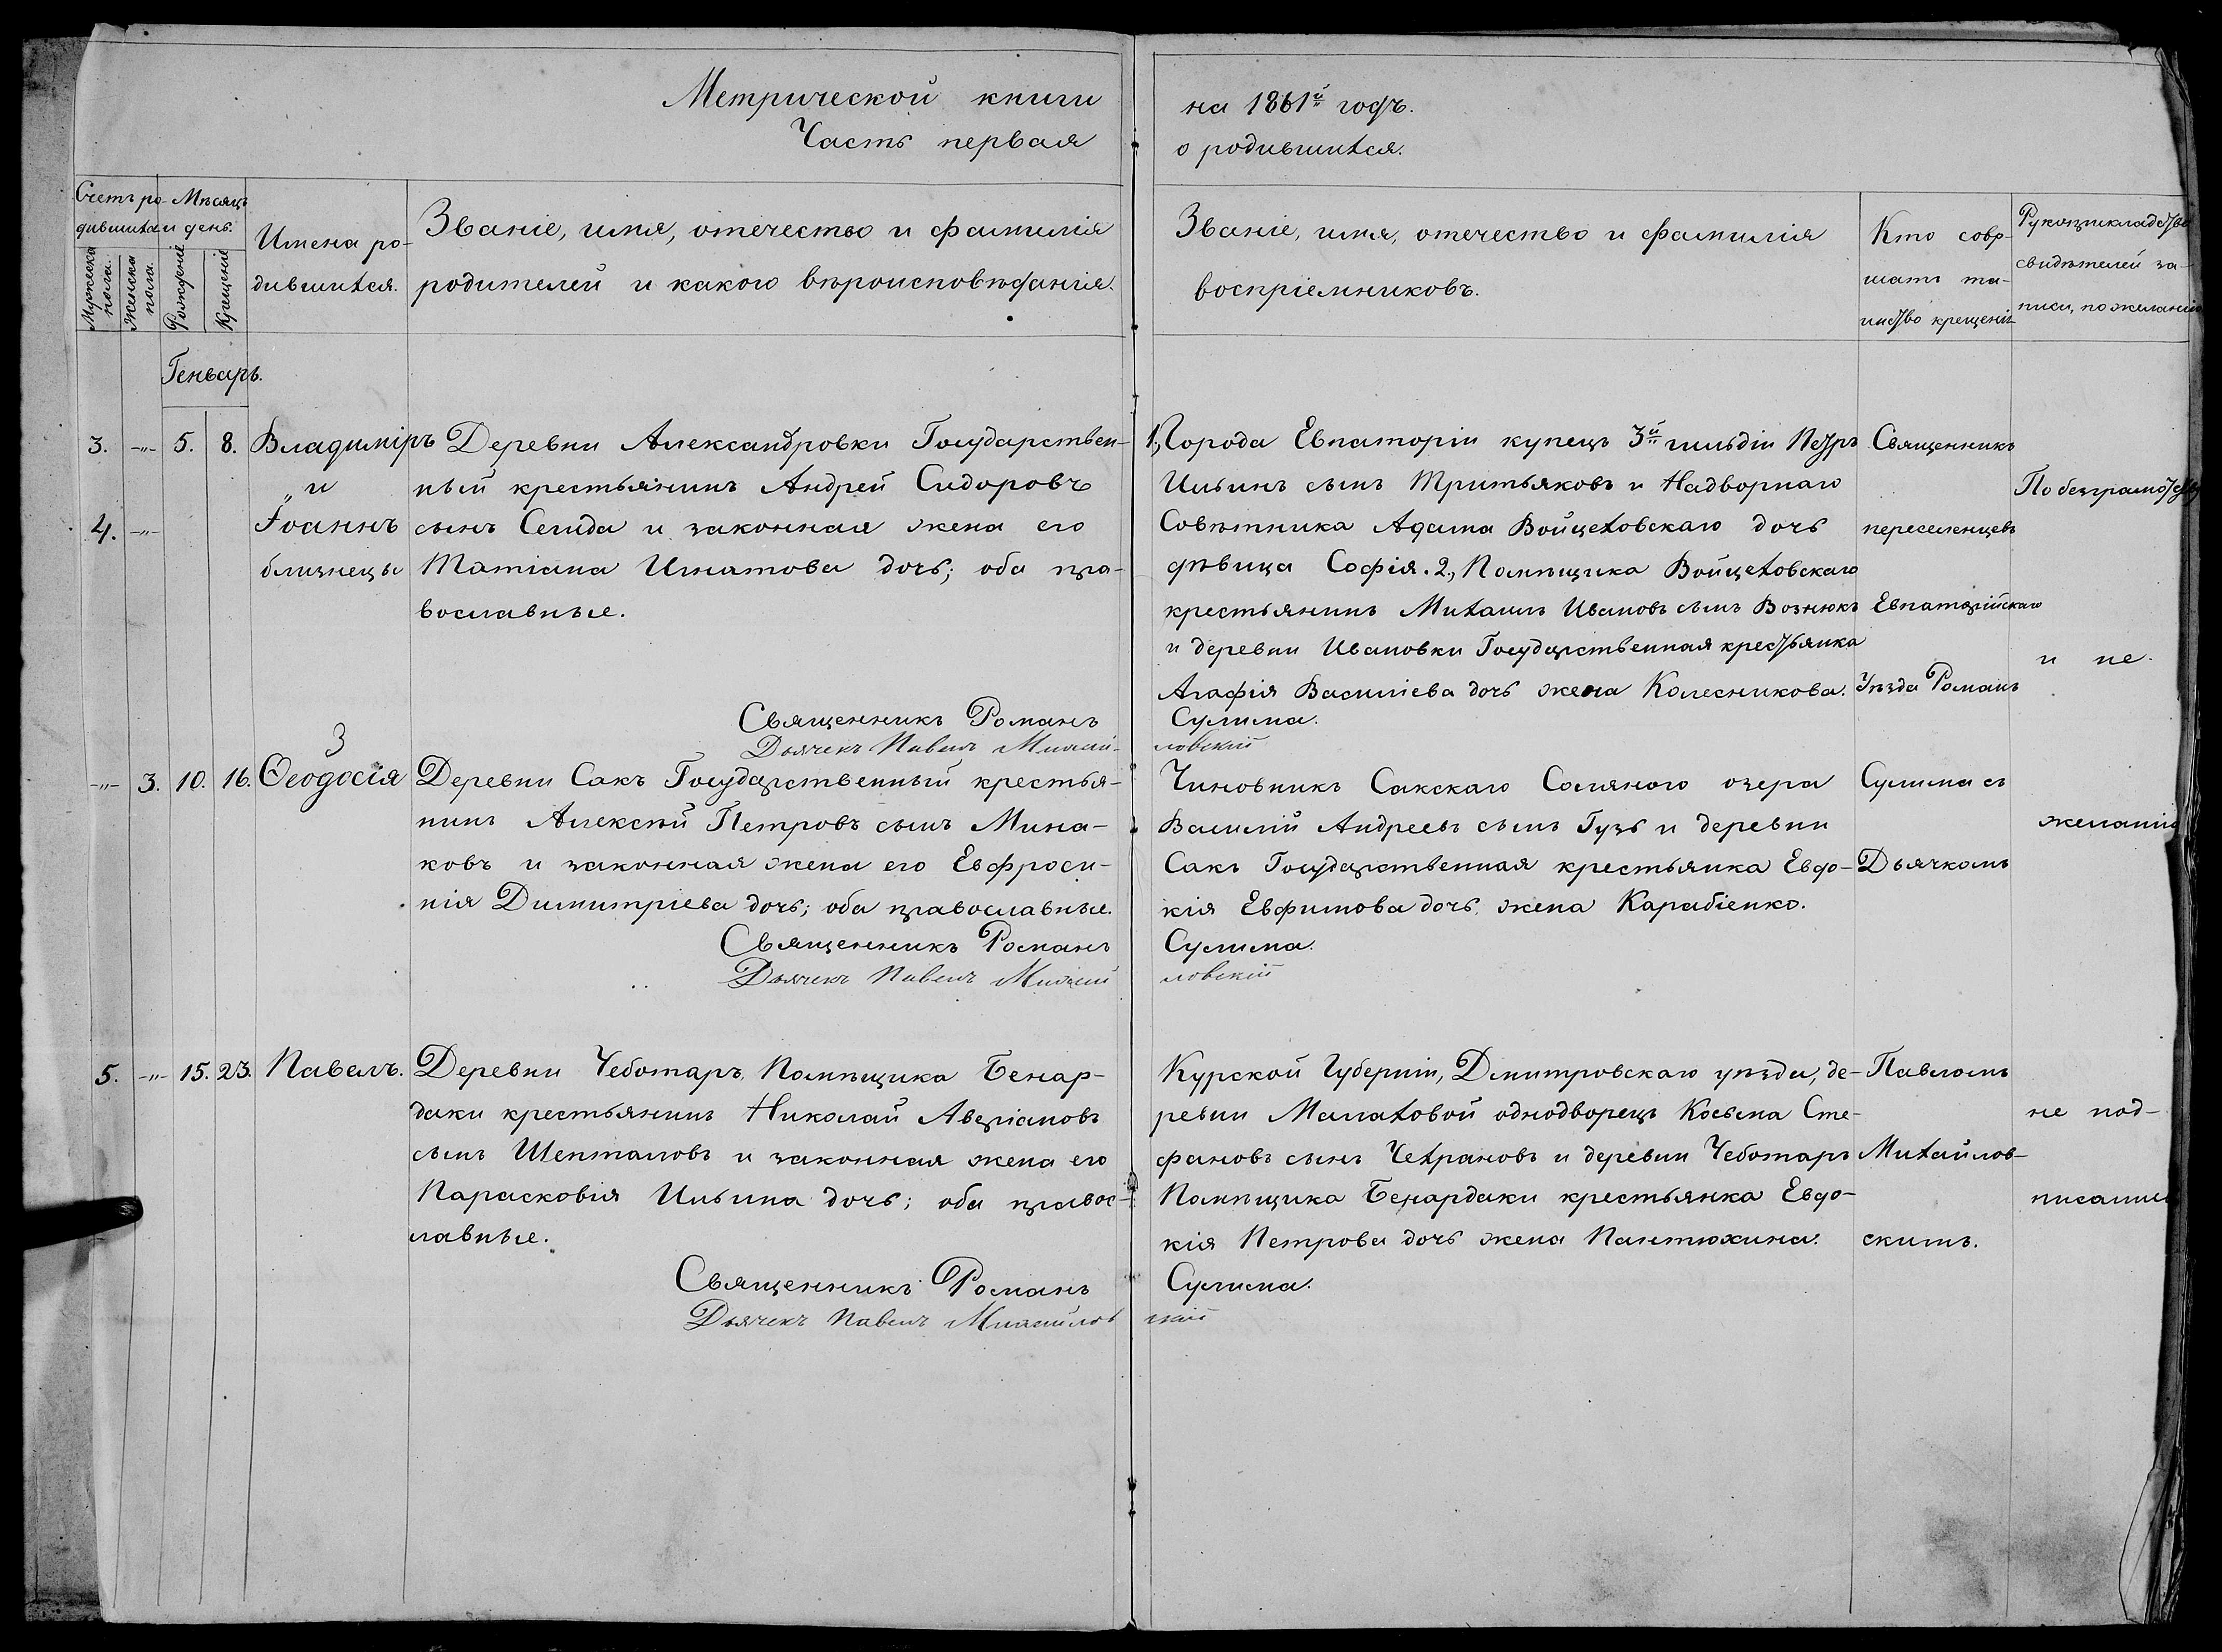 Метрической книги
Часть первая
на 1861й годъ.
о родившихся.
Счетъ ро-
дившихся
Мужеска пола.
Женска пола.
Мѣсяцъ
и день.
Рожденіе
Крещеніе
Имена ро-
дившихся.
Званіе, имя, отечество и фамилія
родителей и какого вѣроисповѣданія.
Званіе, имя, отечество и фамилія
воспріемниковъ.
Кто совер-
шалъ та-
инство крещенія
Рукоприкладство
свидѣтелей за-
писи, по желанію
Генварь.
3. -„- 5. 8. Владиміръ
„и
4. -„- Іоаннъ
близнецы
Деревни Александровки Государствен-
ный крестьянинъ Андрей Сидоровъ
сынъ Семида и законная жена его
Татіана Игнатова дочь; оба пра-
вославные.
1., Города Евпаторіи купецъ 3й гильдіи Петръ
Ильинъ сынъ Тритьяковъ и Надворнаго
Совѣтника Адама Войцеховскаго дочь
дѣвица Софія. 2., Помѣщика Войцеховскаго
крестьянинъ Михаилъ Ивановъ сынъ Вознюкъ
и деревни Ивановки Государственная крестьянка
Агафія Василіева дочь жена Колесникова.
Священникъ
переселенцевъ
Евпаторійскаго
Уѣзда Романъ
По безграмотству
и не-
Священникъ Романъ Сулима.
Дьячекъ Павелъ Михайловскій
3
-„- 3. 10. 16. Ѳеодосія
Деревни Сакъ Государственный крестья-
нинъ Алексѣй Петровъ сынъ Мина-
ковъ и законная жена его Евфроси-
нія Димитріева дочь; оба православные.
Чиновникъ Сакскаго Соляного озера
Василій Андреевъ сынъ Гузь и деревни
Сакъ Государственная крестьянка Евдо-
кія Евфимова дочь, жена Карабіенко.
Сулима съ
Дьячкомъ
желанію
Священникъ Романъ Сулима.
Дьячекъ Павелъ Михайловскій
5. -„- 15. 23. Павелъ.
Деревни Чеботаръ, Помѣщика Бенар-
даки крестьянинъ Николай Аверіановъ
сынъ Шепталовъ и законная жена его
Парасковія Ильина дочь; оба правос-
лавные.
Курской Губерніи, Дмитровскаго уѣзда, де-
ревни Малаховой однодворецъ Косьма Сте-
фановъ сынъ Чехрановъ и деревни Чеботаръ
Помѣщика Бенардаки крестьянка Евдо-
кія Петрова дочь жена Пантюхина.
Павломъ
Михайлов-
скимъ.
не под-
писались
Священникъ Романъ Сулима.
Дьячекъ Павелъ Михайловскій